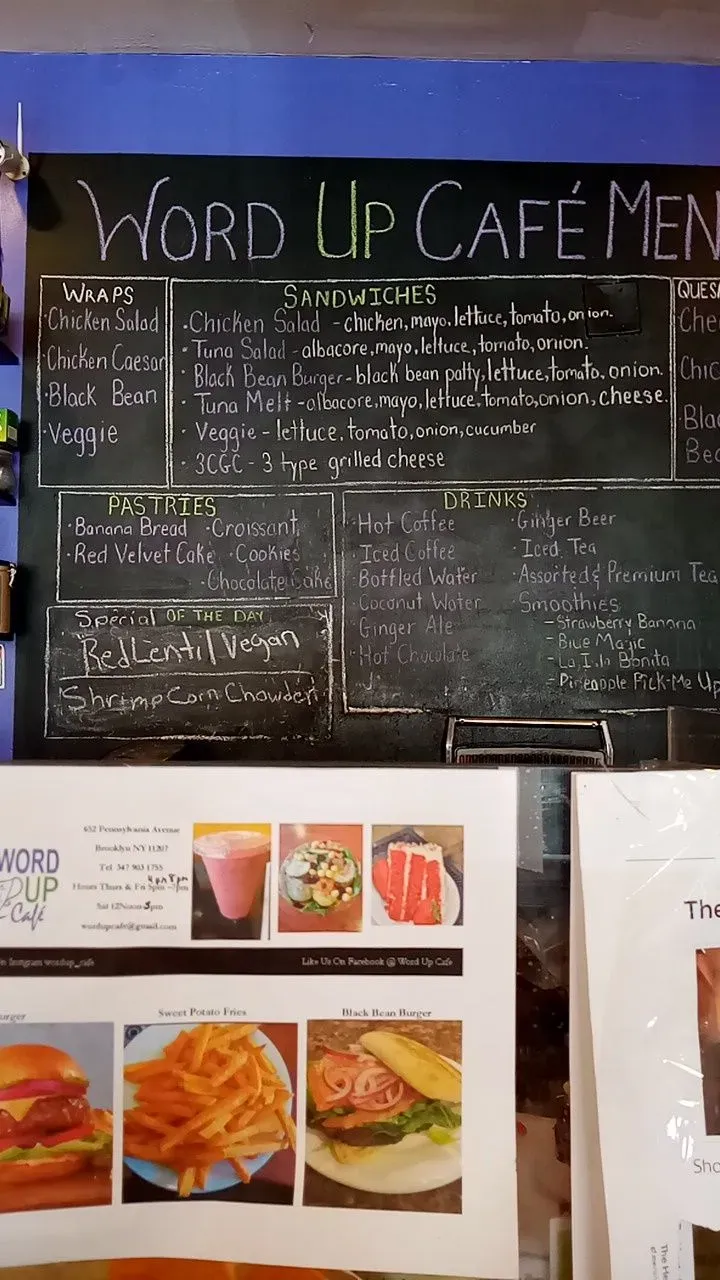 WORD UP CAFÉ MEN
WRAPS
·Chicken Salad
·Chicken Caesar
·Black Bean
·Veggie
SANDWICHES
·Chicken Salad - chicken, mayo, lettuce, tomato, onion.
·Tuna Salad - albacore, mayo, lettuce, tomato, onion.
·Black Bean Burger - black bean patty, lettuce, tomato, onion.
·Tuna Melt - albacore, mayo, lettuce, tomato, onion, cheese.
·Veggie - lettuce, tomato, onion, cucumber
·3CGC - 3 type grilled cheese
QUESA
Che
Chic
Blac
Bea
PASTRIES
·Banana Bread ·Croissant
·Red Velvet Cake ·Cookies
·Chocolate Cake
Special OF THE DAY
Red Lentil Vegan
Shrimp Corn Chowder
DRINKS
·Hot Coffee
·Iced Coffee
·Bottled Water
·Coconut Water
·Ginger Ale
·Hot Chocolate
·Ginger Beer
·Iced Tea
·Assorted & Premium Tea
Smoothies
-Strawberry Banana
-Blue Majic
-La Isla Bonita
-Pineapple Pick-Me Up
WORD
UP
Café
652 Pennsylvania Avenue
Brooklyn NY 11207
Tel 347 903 1755
Hours Thurs & Fri
wordupcafe@gmail.com
wordup_cafe
Like Us On Facebook @ Word Up Cafe
urger
Sweet Potato Fries
Black Bean Burger
The
Sho